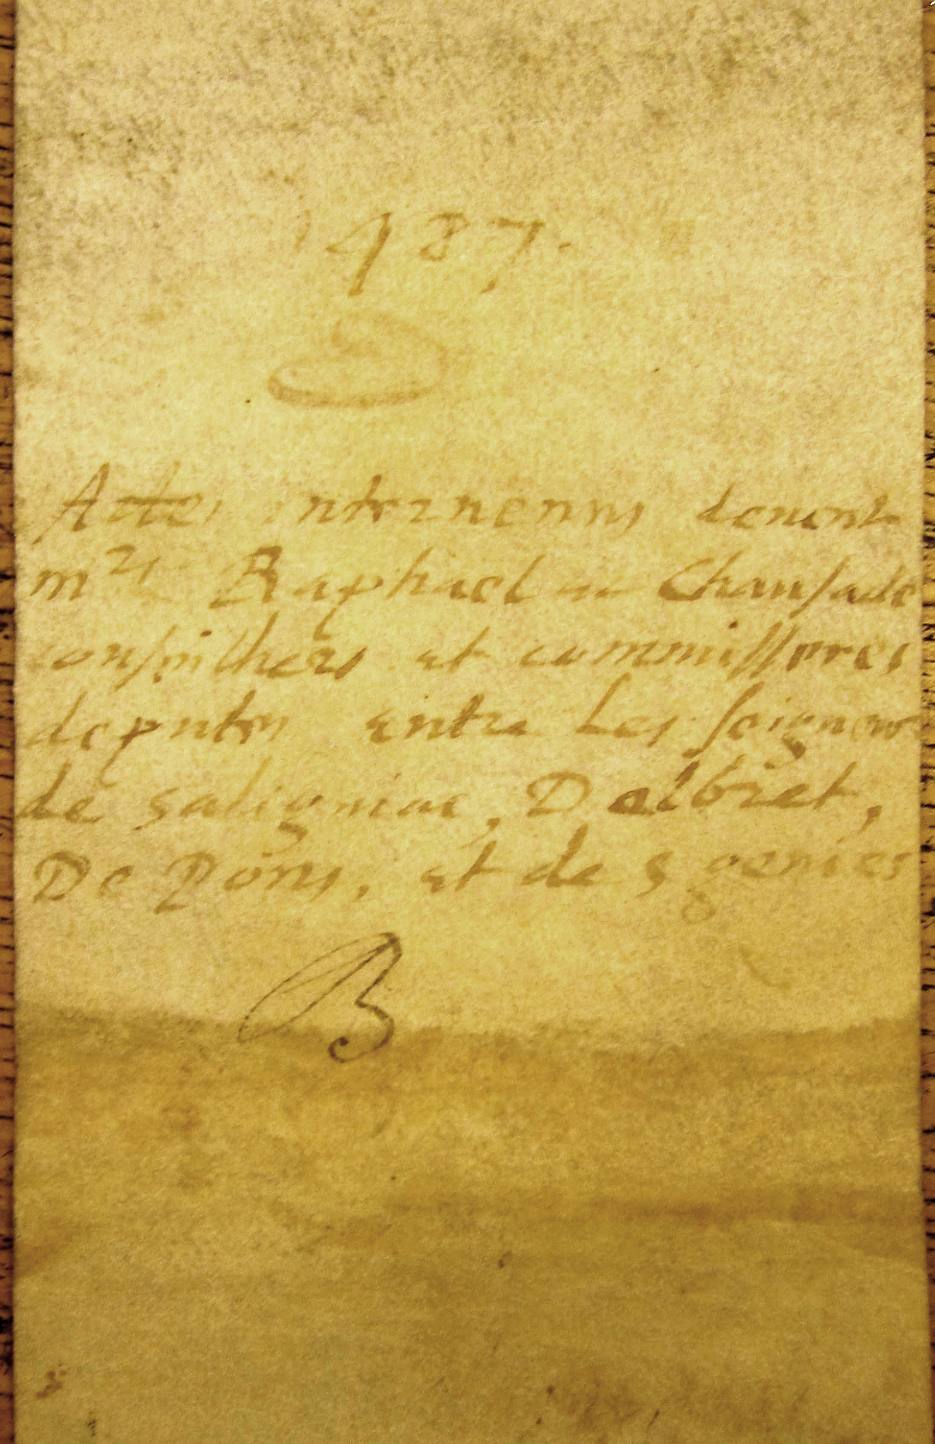 1487.
Actes intervenenus devent
mrs Raphael et Chaussade
conseilhers et commisseres
deputes entre Les seigneurs
de salignac, Dalbret,
De pons, et de s genies
B